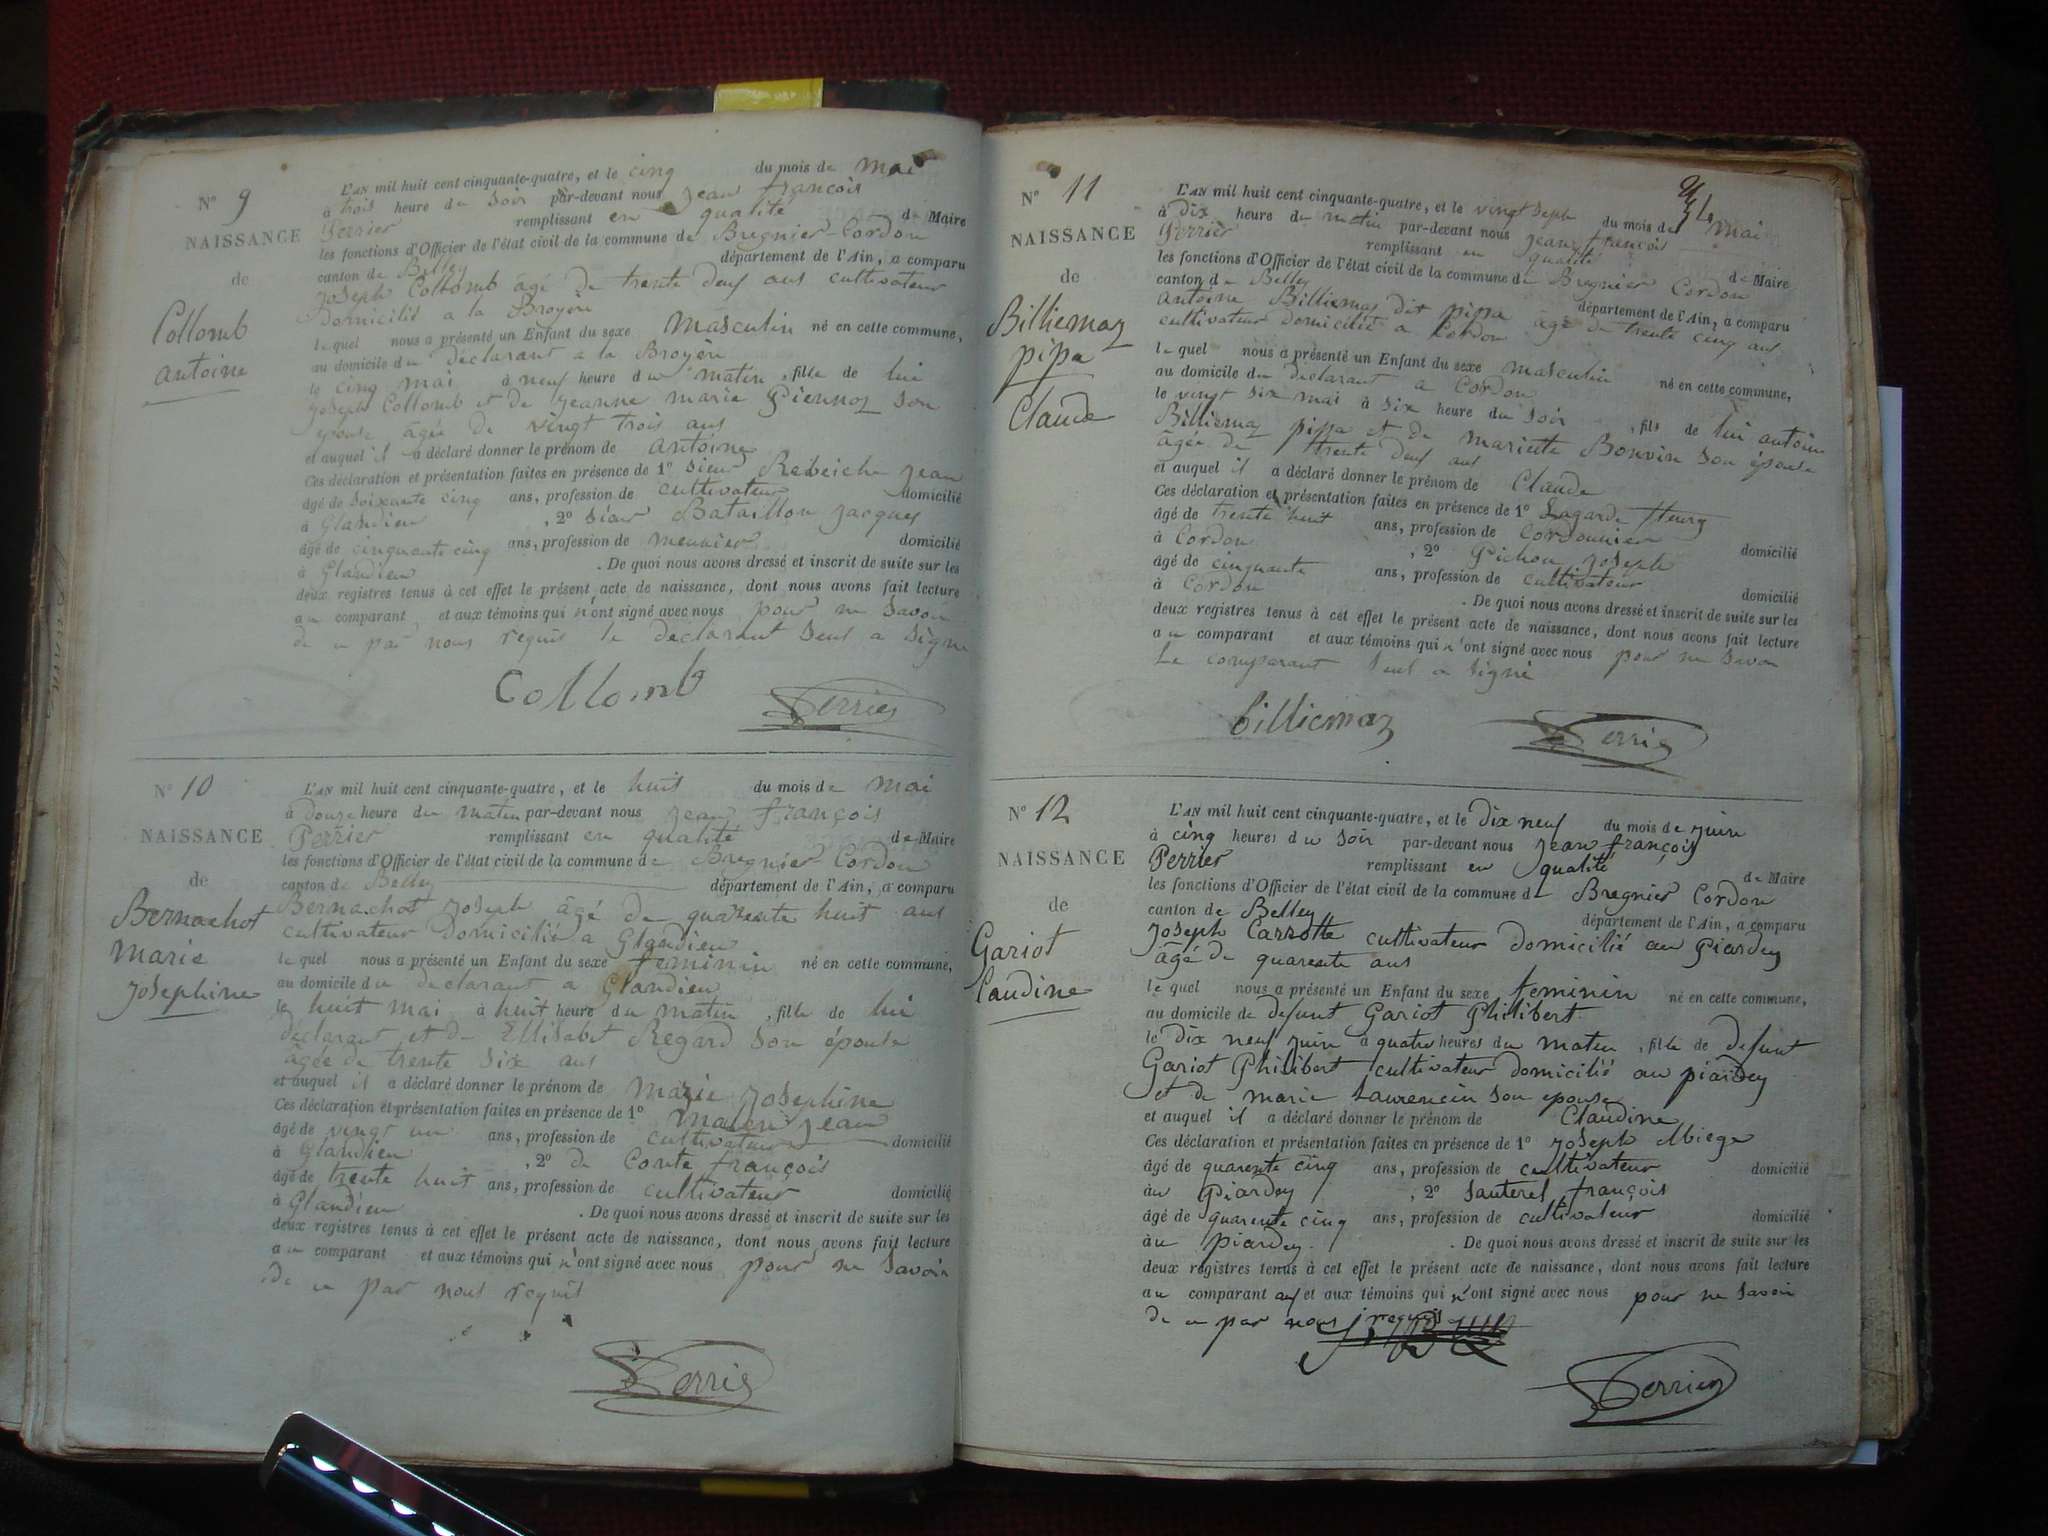 N° 9
NAISSANCE
de
Collomb
antoine
L'AN mil huit cent cinquante-quatre, et le cinq du mois de mai
à trois heure du soir par-devant nous jean françois
Perrier remplissant en qualité de Maire
les fonctions d'Officier de l'état civil de la commune de Bregnier-Cordon
canton de Belley département de l'Ain, a comparu
joseph Collomb âgé de trente deux ans cultivateur
Domicilié a la Broyère
lequel nous a présenté un Enfant du sexe masculin né en cette commune,
au domicile du déclarant a la Broyère
le cinq mai à neuf heure du matin, fils de lui
joseph Collomb et de jeanne marie Piennoz son
épouse âgée de vingt trois ans
et auquel il a déclaré donner le prénom de antoine
Ces déclaration et présentation faites en présence de 1° sieur Rebeiche jean
âgé de soixante cinq ans, profession de cultivateur domicilié
à Glandieu , 2° siaur Bataillon jacques
âgé de cinquante cinq ans, profession de meunier domicilié
à Glandieu . De quoi nous avons dressé et inscrit de suite sur les
deux registres tenus à cet effet le présent acte de naissance, dont nous avons fait lecture
au comparant et aux témoins qui n'ont signé avec nous pour ne savoir
de ce par nous requis le declarant seul a signé
Collomb Perrier
N° 10
NAISSANCE
de
Bernachot
marie
josephine
L'AN mil huit cent cinquante-quatre, et le huit du mois de mai
à douze heure du matin par-devant nous jean françois
Perrier remplissant en qualité de Maire
les fonctions d'Officier de l'état civil de la commune de Bregnier Cordon
canton de Belley département de l'Ain, a comparu
Bernachot joseph âgé de quarente huit ans
cultivateur domicilié a Glandieu
lequel nous a présenté un Enfant du sexe feminin né en cette commune,
au domicile du declarant a Glandieu
le huit mai à huit heure du matin, fille de lui
declarant et de Ellisabet Regard son épouse
âgée de trente six ans
et auquel il a déclaré donner le prénom de marie josephine
Ces déclaration et présentation faites en présence de 1° jean
âgé de vingt un ans, profession de cultivateur domicilié
à Glandieu , 2° de Conte françois
âgé de trente huit ans, profession de cultivateur domicilié
à Glandieu . De quoi nous avons dressé et inscrit de suite sur les
deux registres tenus à cet effet le présent acte de naissance, dont nous avons fait lecture
au comparant et aux témoins qui n'ont signé avec nous pour ne savoir
de ce par nous requis
Perrier
N° 11
NAISSANCE
de
Billiemaz
pipa
Claude
L'AN mil huit cent cinquante-quatre, et le vingt sept du mois de mai
à dix heure du matin par-devant nous jean françois
Perrier remplissant en qualité de Maire
les fonctions d'Officier de l'état civil de la commune de Bregnier Cordon
canton de Belley département de l'Ain, a comparu
antoine Billiemaz dit pippa âgé de trente cinq ans
cultivateur domicilié a Cordon
lequel nous a présenté un Enfant du sexe masculin né en cette commune,
au domicile du declarant a Cordon
le vingt six mai à six heure du soir, fils de lui antoine
Billiemaz pippa et de mariette Bonvin son épouse
âgée de trente deux ans
et auquel il a déclaré donner le prénom de Claude
Ces déclaration et présentation faites en présence de 1° Lagarde fleury
âgé de trente huit ans, profession de Cordonnier domicilié
à Cordon , 2° Pichon joseph
âgé de cinquante ans, profession de cultivateur domicilié
à Cordon . De quoi nous avons dressé et inscrit de suite sur les
deux registres tenus à cet effet le présent acte de naissance, dont nous avons fait lecture
au comparant et aux témoins qui n'ont signé avec nous pour ne savoir
Le comparant seul a signé
billiemaz Perrier
N° 12
NAISSANCE
de
Gariot
Claudine
L'AN mil huit cent cinquante-quatre, et le dix neuf du mois de juin
à cinq heures du soir par-devant nous jean françois
Perrier remplissant en qualité de Maire
les fonctions d'Officier de l'état civil de la commune de Bregnier Cordon
canton de Belley département de l'Ain, a comparu
joseph Carrotte cultivateur domicilié au Piardey
âgé de quarente ans
lequel nous a présenté un Enfant du sexe feminin né en cette commune,
au domicile de defunt Gariot Philibert
le dix neuf juin à quatre heures du matin, fille de defunt
Gariot Philibert cultivateur domicilié au piardey
et de marie Laurencin son épouse
et auquel il a déclaré donner le prénom de Claudine
Ces déclaration et présentation faites en présence de 1° joseph Miege
âgé de quarente cinq ans, profession de cultivateur domicilié
au Piardey , 2° Sauterel françois
âgé de quarente cinq ans, profession de cultivateur domicilié
au piardey . De quoi nous avons dressé et inscrit de suite sur les
deux registres tenus à cet effet le présent acte de naissance, dont nous avons fait lecture
au comparant et aux témoins qui n'ont signé avec nous pour ne savoir
de ce par nous requis
Perrier